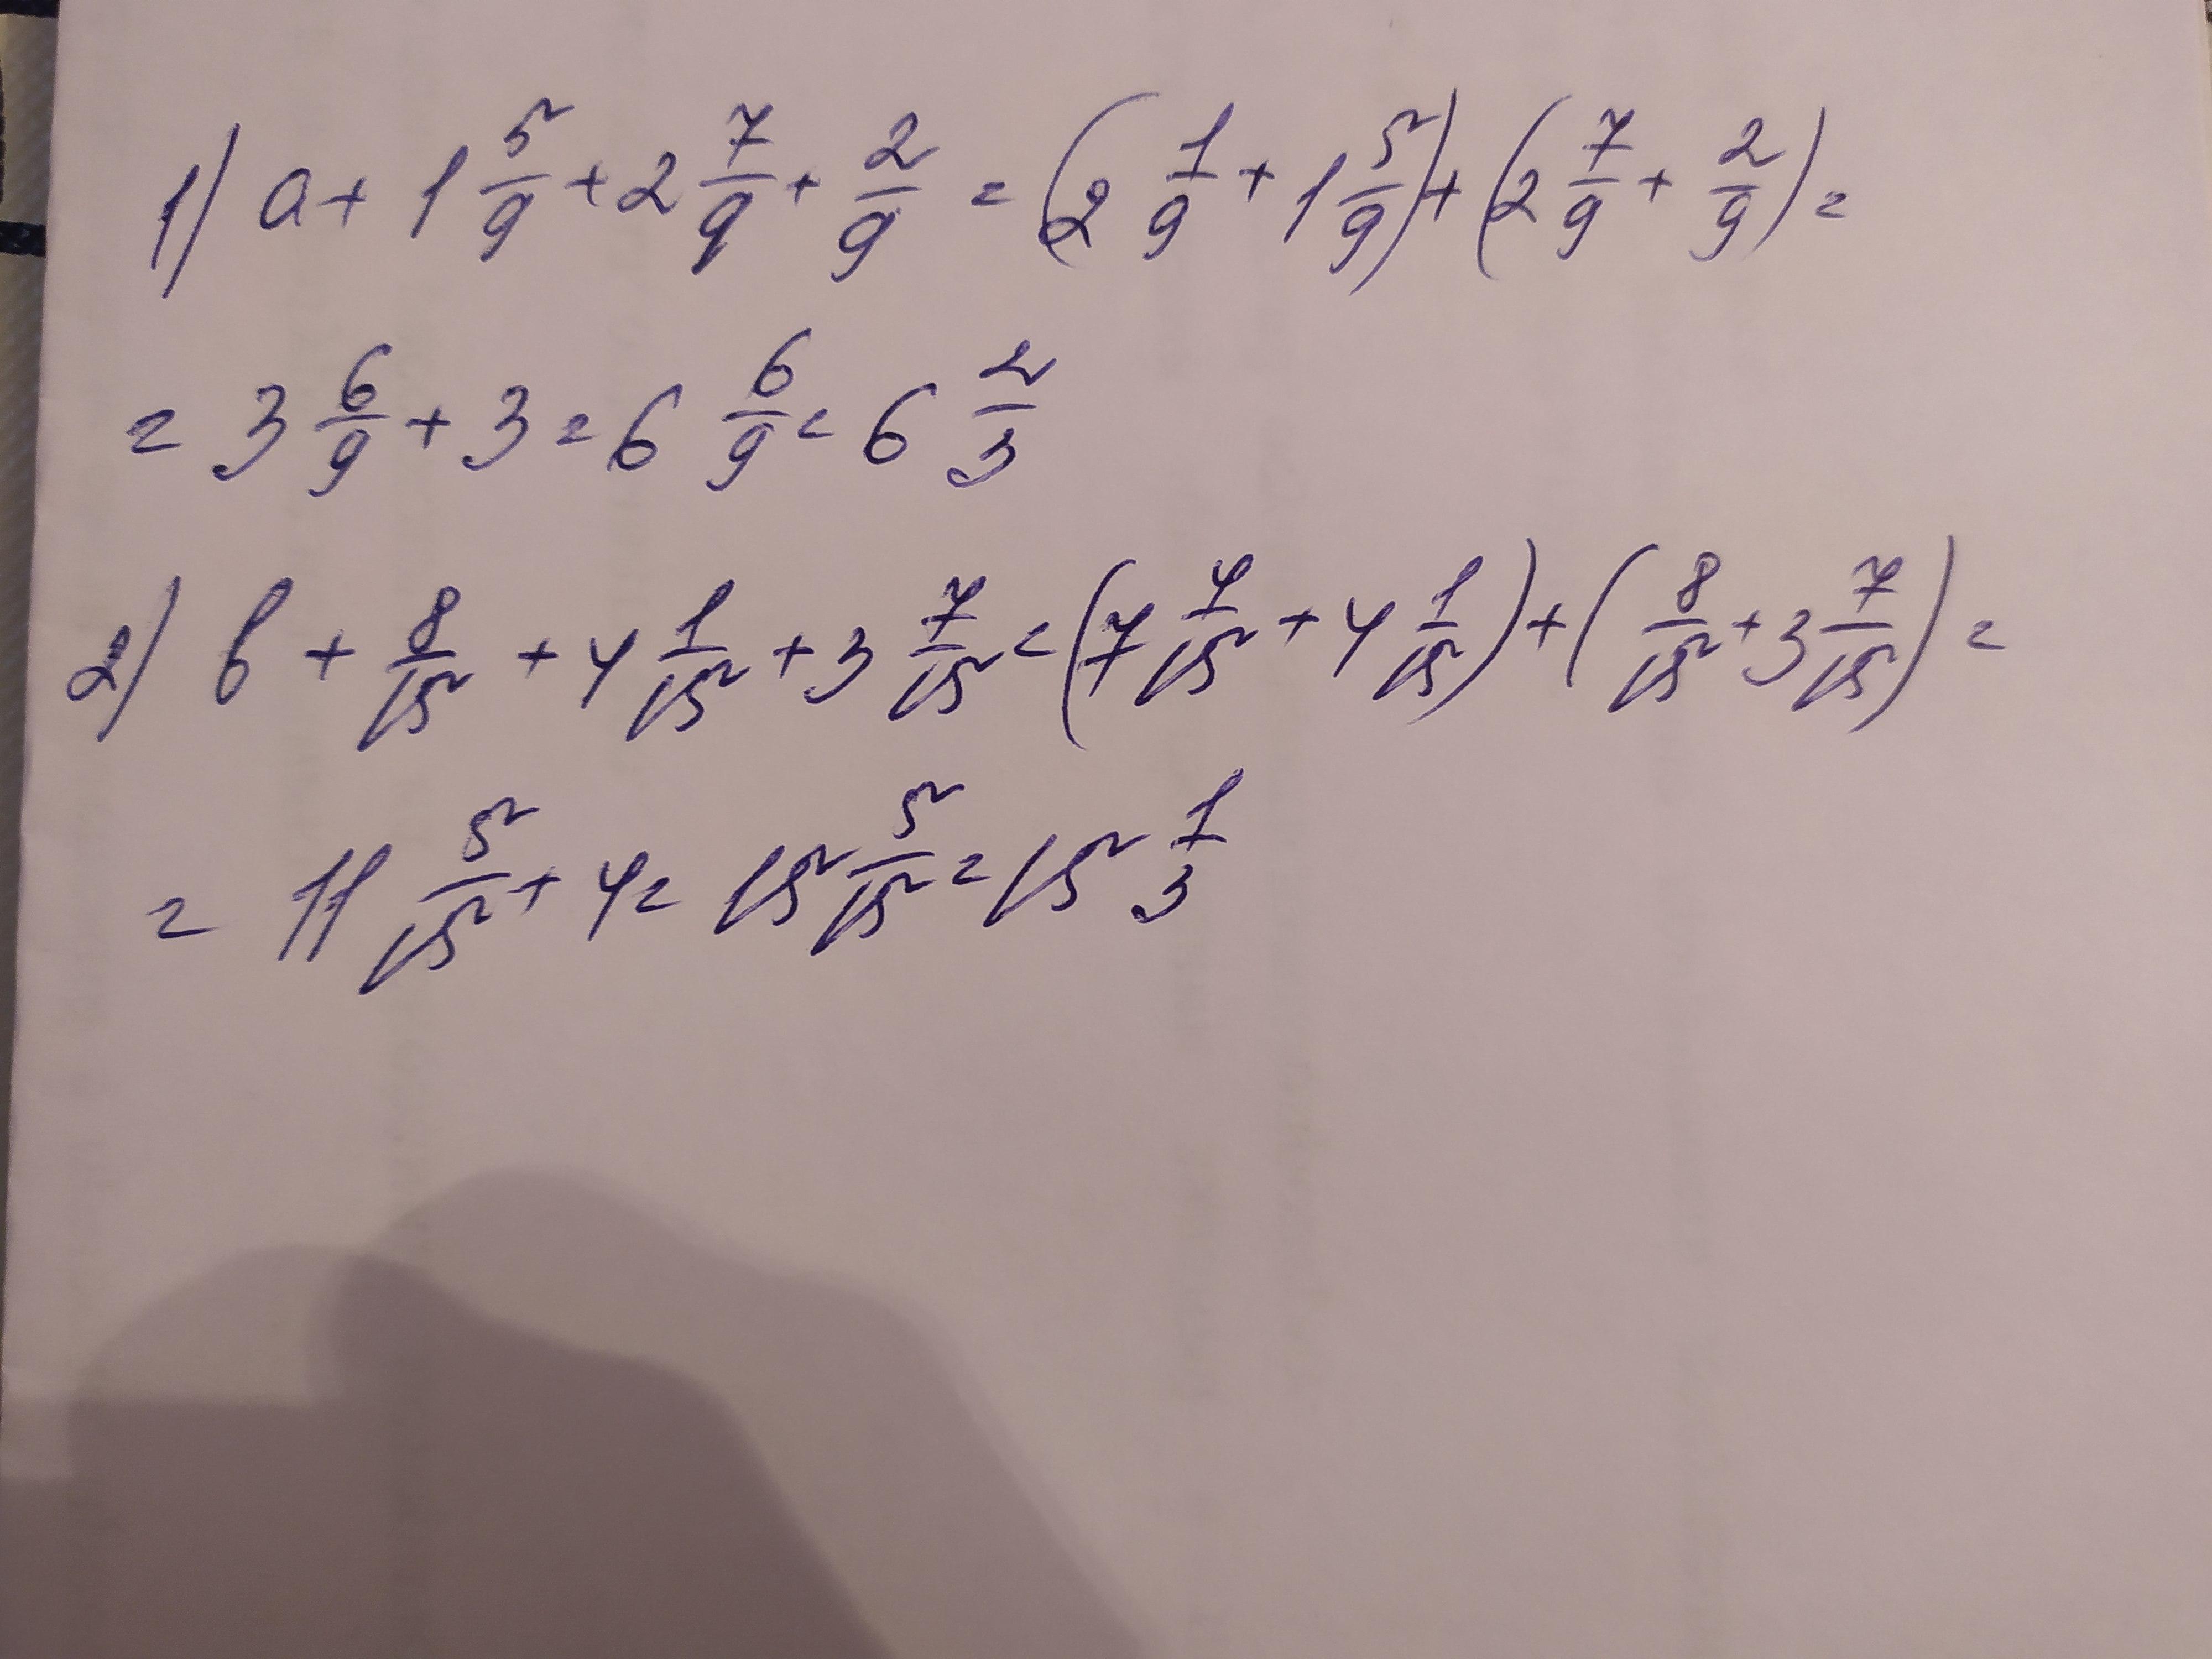 1) a + 1 5/9 + 2 7/9 + 2/9 = (2 1/9 + 1 5/9) + (2 7/9 + 2/9) =
= 3 6/9 + 3 = 6 6/9 = 6 2/3
2) b + 8/15 + 4 1/15 + 3 7/15 = (7 4/15 + 4 1/15) + (8/15 + 3 7/15) =
= 11 5/15 + 4 = 15 5/15 = 15 1/3